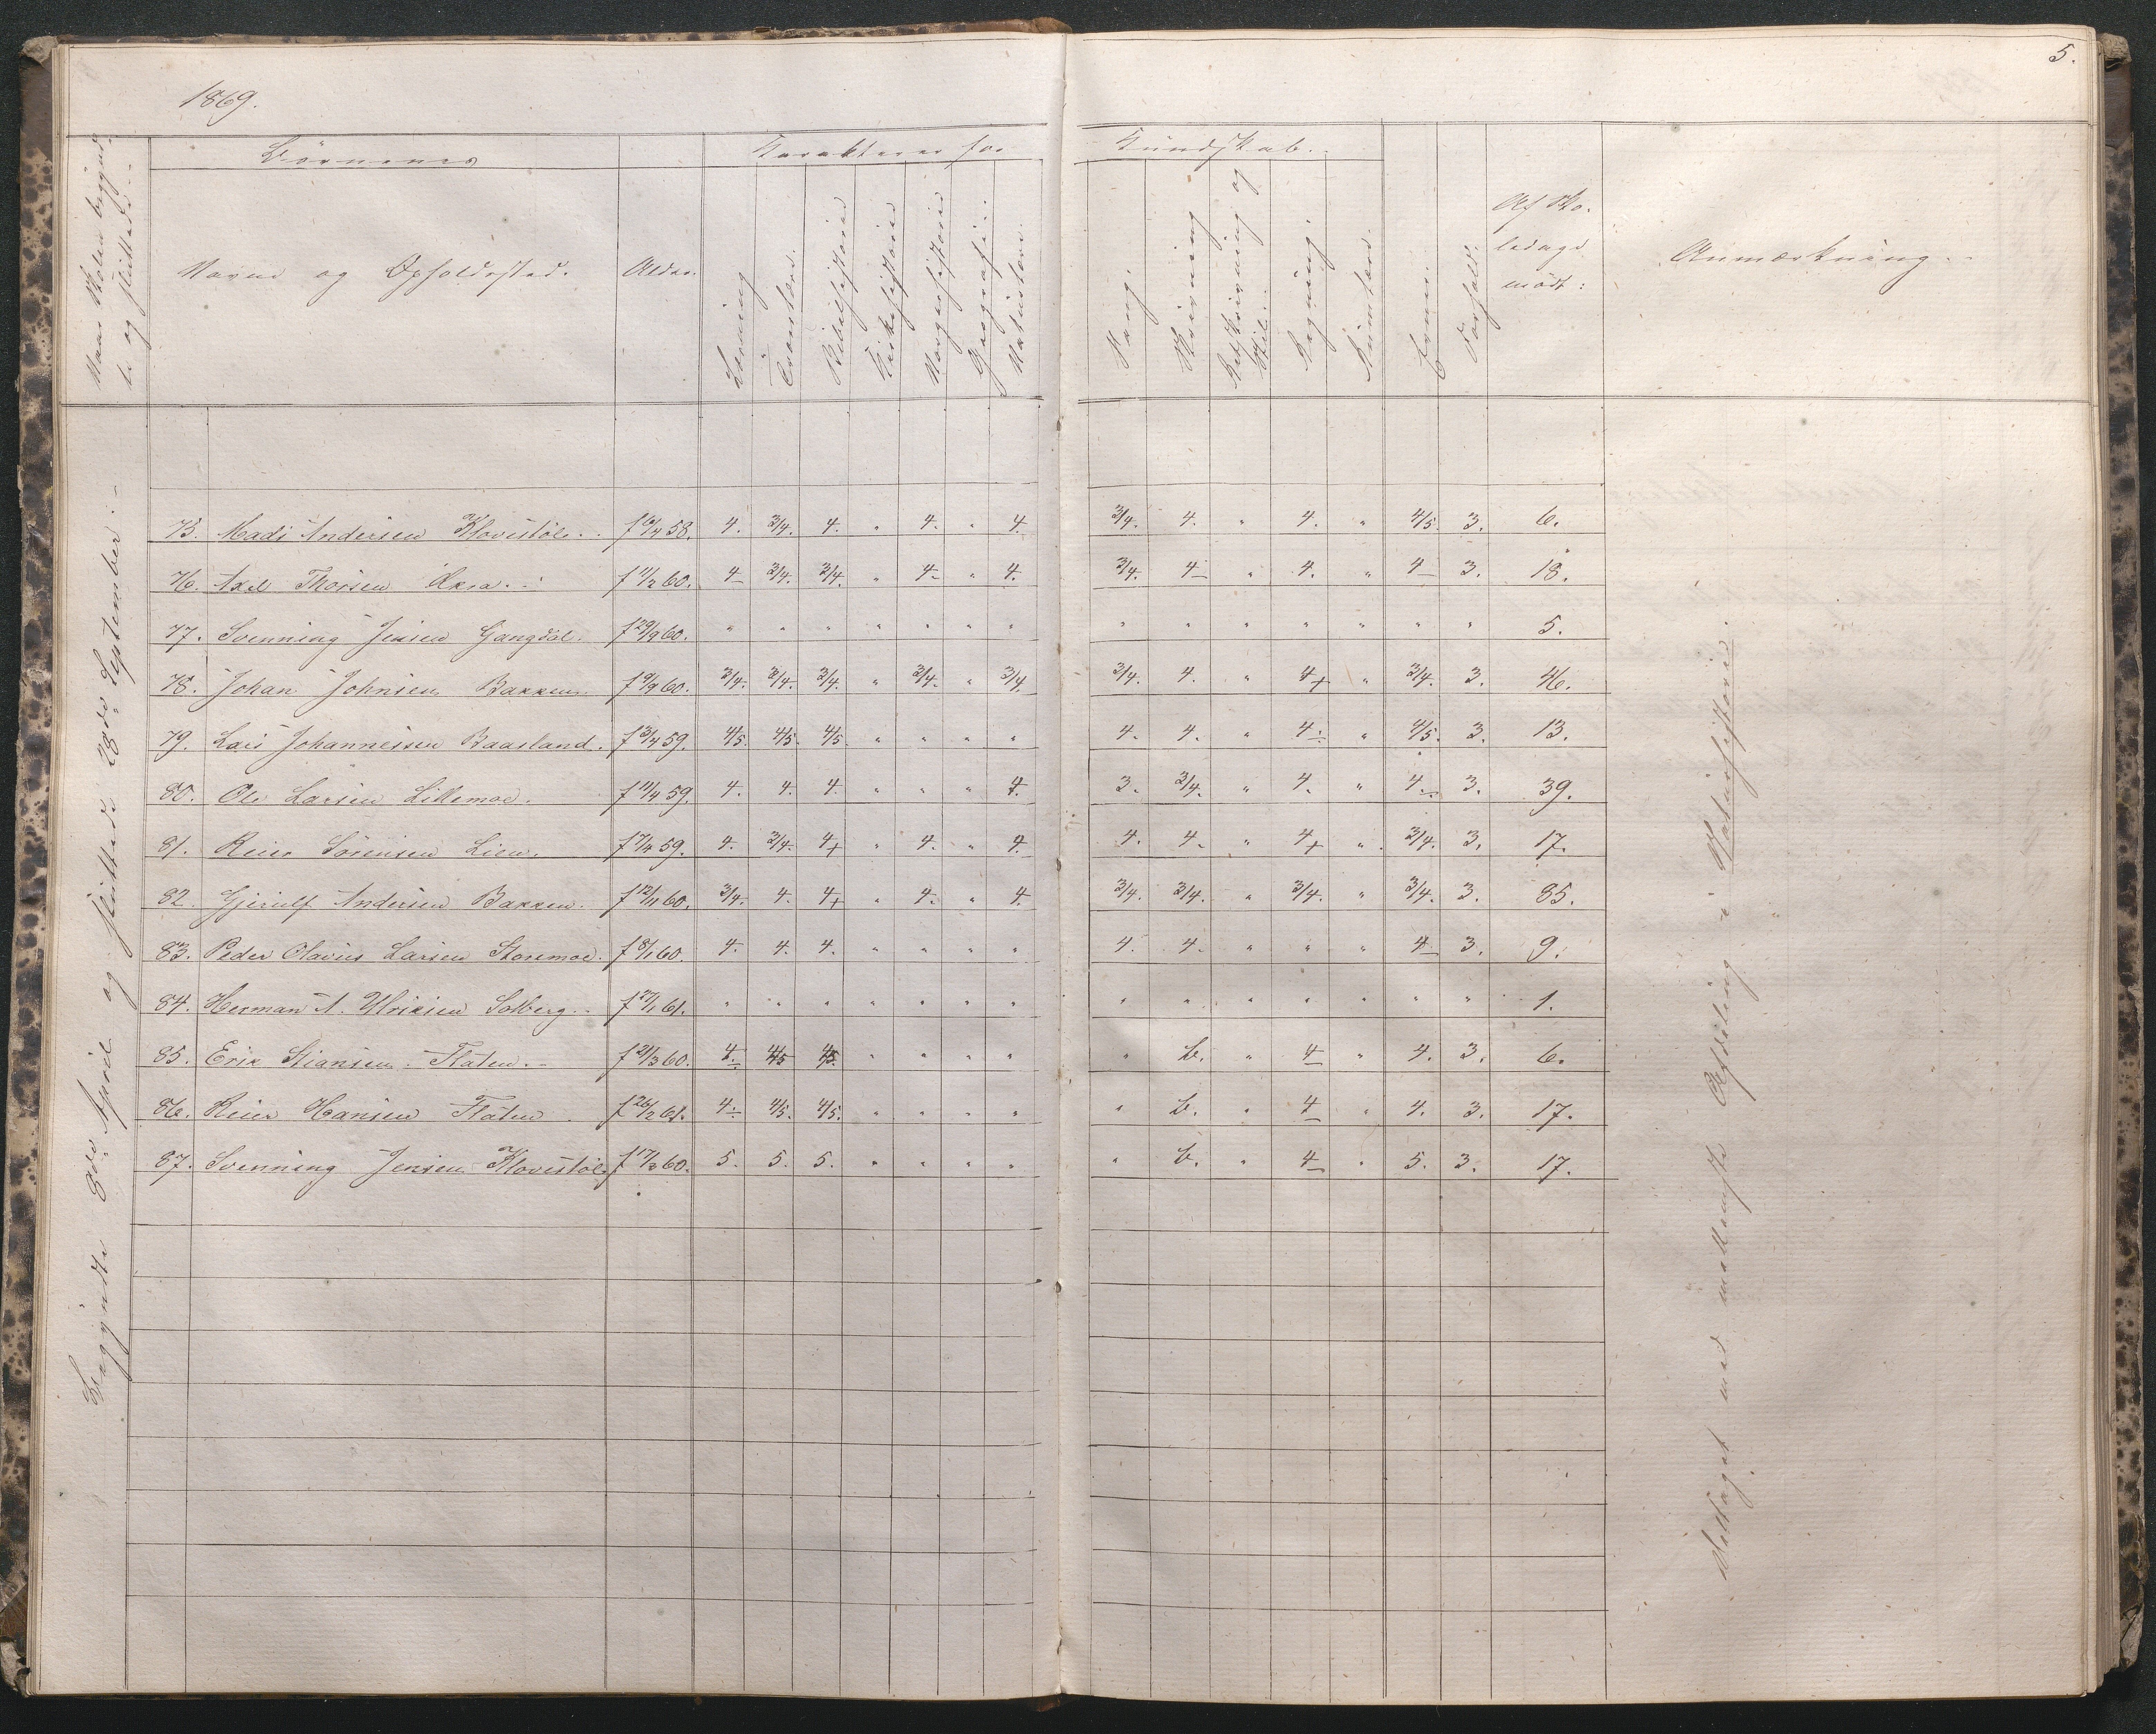 1869.
5.
Naar Skolen begynd-
te og sluttede.
Børnenes
Karakterer for
Kundskab.
Navne og Opholdssted.
Alder.
Læsning
Troeslære.
Bibelhistorie
Kirkehistorie
Norgeshistorie
Geografi.
Naturlære.
Sang.
Skrivning
Retskrivning og
Stil.
Regning.
Evner.
Forhold.
Af Sko-
ledage
mødt:
Anmærkning.
Begyndte 8de April og sluttede 28de September.
75. Mads Andersen Klovstøl. f 16/4 58. 4. 3/4. 4. " 4. " 4. 3/4. 4. " 4. " 4/5. 3. 6.
76. Axel Thorsen Aksa. f 11/2 60. 4 3/4. 3/4. " 4. " 4. 3/4. 4 " 4. " 4 3. 18.
77. Svenning Jensen Gangdal. f 29/9 60. " " " " " " " " " " " " " " 5.
78. Johan Johnsen Bakken. f 9/9 60. 3/4. 3/4. 3/4. " 3/4. " 3/4. 3/4. 4. " 4+ " 3/4. 3. 46.
79. Lars Johannessen Baasland. f 23/4 59. 4/5. 4/5. 4/5. " " " " 4. 4. " 4 " 4/5. 3. 13.
80. Ole Larsen Lillemoe. f 11/4 59. 4. 4. 4. " " " 4. 3. 3/4. " 4. " 4. 3. 39.
81. Reier Sørensen Lien. f 7/4 59. 4. 3/4. 4+ " 4. " 4. 4. 4. " 4+ " 3/4. 3. 17.
82. Gjerulf Andersen Bakken. f 12/11 60. 3/4. 4. 4+ " 4. " 4. 3/4. 3/4. " 3/4. " 3/4. 3. 85.
83. Peder Olavus Larsen Storemoe. f 8/1 60. 4. 4. 4. " " " " 4. 4. " " " 4 3. 9.
84. Herman A. Ulriksen Solberg. f 27/1 61. " " " " " " " " " " " " " " 1.
85. Erik Stiansen Flaten. f 21/3 60. 4. 4/5 4/5. " " " " " b. " 4 " 4. 3. 6.
86. Reier Hansen Flaten. f 26/2 61. 4 4/5. 4/5. " " " " " b. " 4 " 4. 3. 17.
87. Svenning Jensen Klovstøl f 17/3 60. 5. 5. 5. " " " " " b. " 4 " 5. 3. 17.
Afdeling i Naturhistorie.